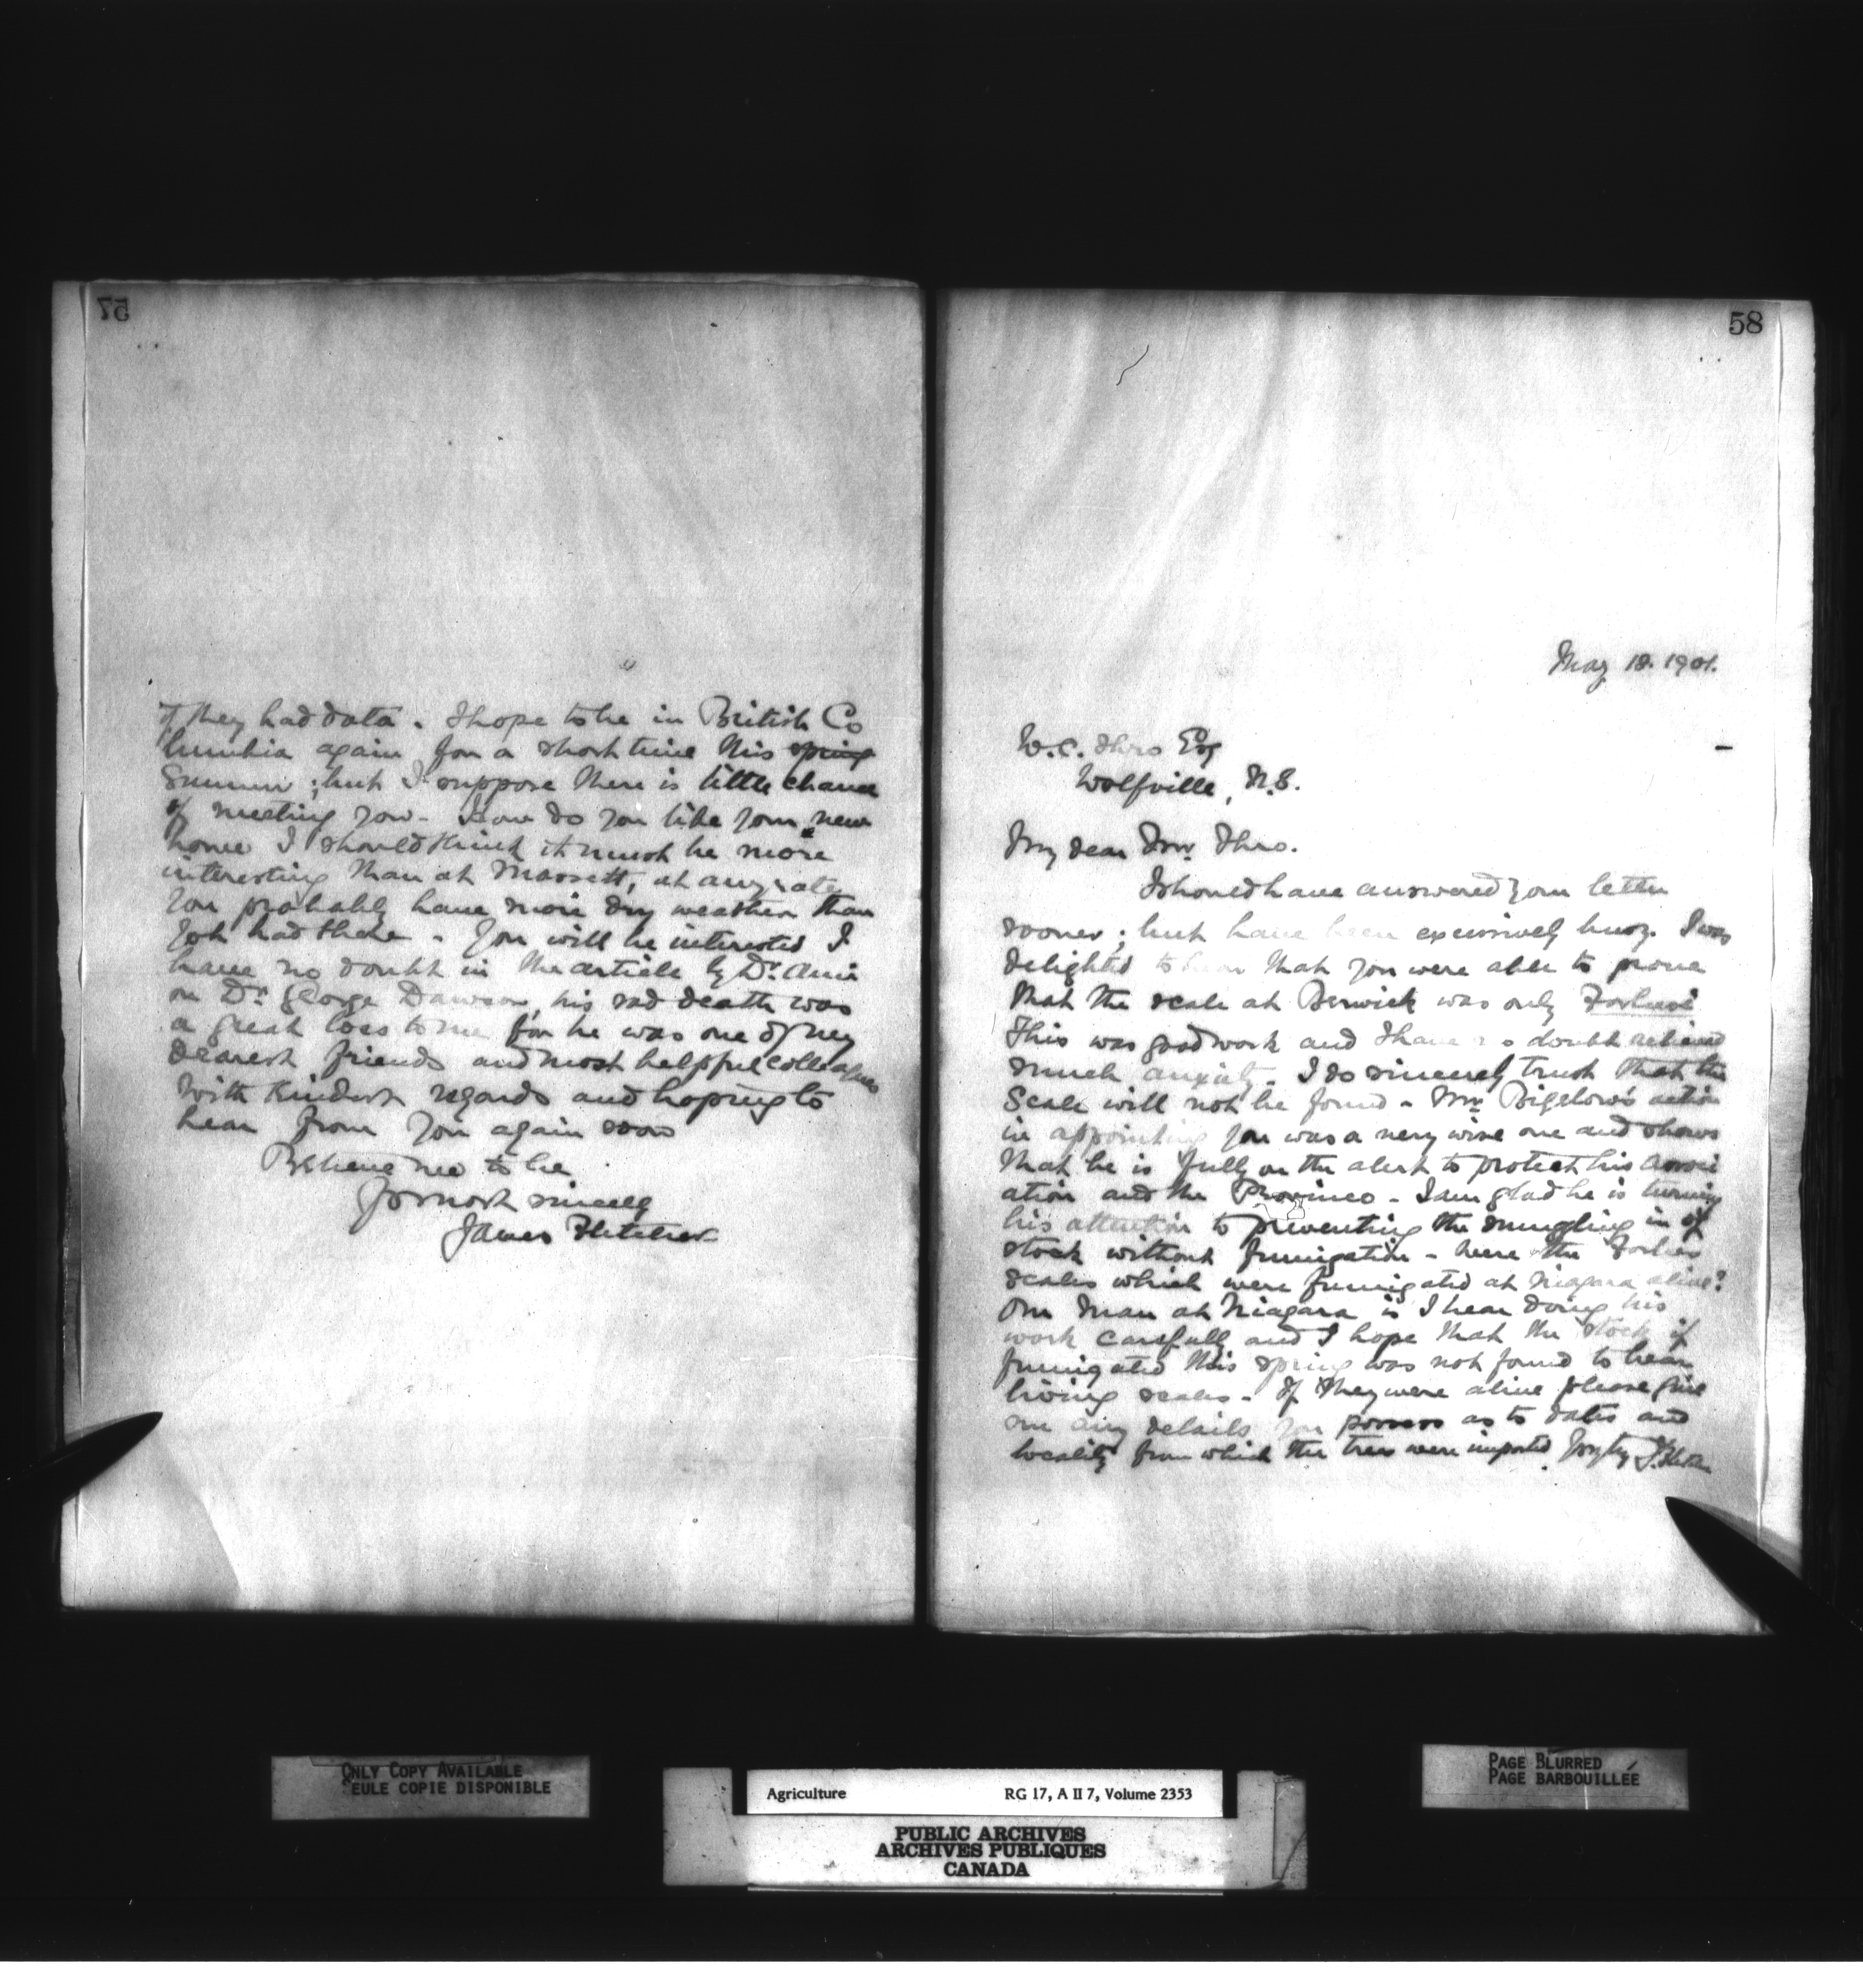 57
if they had data. I hope to be in British Co
lumbia again for a short time this spring
Summer; but I suppose there is little chance
of meeting you. How do you like your new
home I should think it must be more
interesting than at Massett, at any rate
you probably have more dry weather than
you had there. You will be interested I
have no doubt in the article by Dr. Ami
on Dr. George Dawson, his sad death was
a great loss to me for he was one of my
dearest friends and most helpful colleagues
With kindest regards and hoping to
hear from you again soon
Believe me to be
Yrs most sincerely
James Fletcher
58
May 18. 1901.
W.C. Esq
Wolfville, N.S.
My dear Mr.
I should have answered your letter
sooner; but have been excessively busy. I was
delighted to hear that you were able to prove
that the scale at Berwick was only Forbesi
This was good work and I have no doubt relieved
much anxiety. I do sincerely trust that the
Scale will not be found. Mr. Bigelow's action
in appointing you was a very wise one and shows
that he is fully on the alert to protect his associ
ation and the Province. I am glad he is turning
his attention to preventing the smuggling in of
stock without fumigation. Were the Forbes
scales which were fumigated at Niagara alive?
Our man at Niagara is I hear doing his
work carefully and I hope that the stock if
fumigated this spring was not found to bear
living scales. If they were alive please give
me any details you possess as to dates and
locality from which the trees were imported. Yrs try J. Fletcher
ONLY COPY AVAILABLE
SEULE COPIE DISPONIBLE
Agriculture RG 17, A II 7, Volume 2353
PUBLIC ARCHIVES
ARCHIVES PUBLIQUES
CANADA
PAGE BLURRED
PAGE BARBOUILLÉE